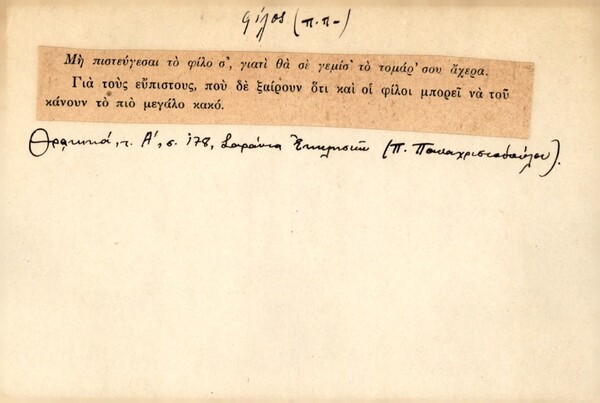 φίλος (π.π-)
Μὴ πιστεύγεσαι τὸ φίλο σ', γιατὶ θὰ σὲ γεμίσ' τὸ τομάρ' σου ἄχερα.
Γιὰ τοὺς εὔπιστους, ποὺ δὲ ξαίρουν ὅτι καὶ οἱ φίλοι μπορεῖ νὰ τοῦ
κάνουν τὸ πιὸ μεγάλο κακό.
Θρακικά, τ. Α', σ. 178, Σαράντα Ἐκκλησιῶν (Π. Παπαχριστοδούλου).